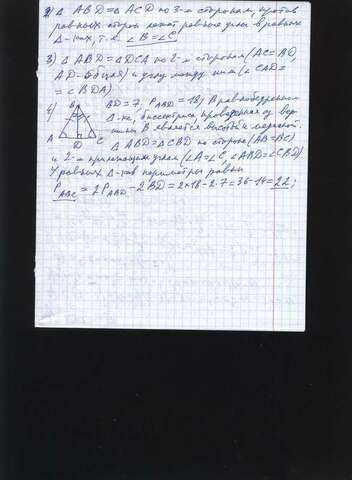 2) Δ ABD = Δ ACD по 3-м сторонам, против
равных сторон лежат равные углы в равных
Δ-ках, т.е. ∠B = ∠C
3) Δ ABD = Δ DCA по 2-м сторонам (AC = BD,
AD - общая) и углу между ними (∠CAD =
= ∠BDA)
4) BD = 7, P ABD = 18; В равнобедренном
Δ-ке, биссектриса, проведенная из вер-
шины B является высотой и медианой.
B
A D C
Δ ABD = Δ CBD по стороне (AB = BC)
и 2-м прилежащим углам (∠A = ∠C, ∠ABD = ∠CBD)
У равных Δ-ков периметры равны
P ABC = 2P ABD - 2BD = 2×18 - 2·7 = 36 - 14 = 22;